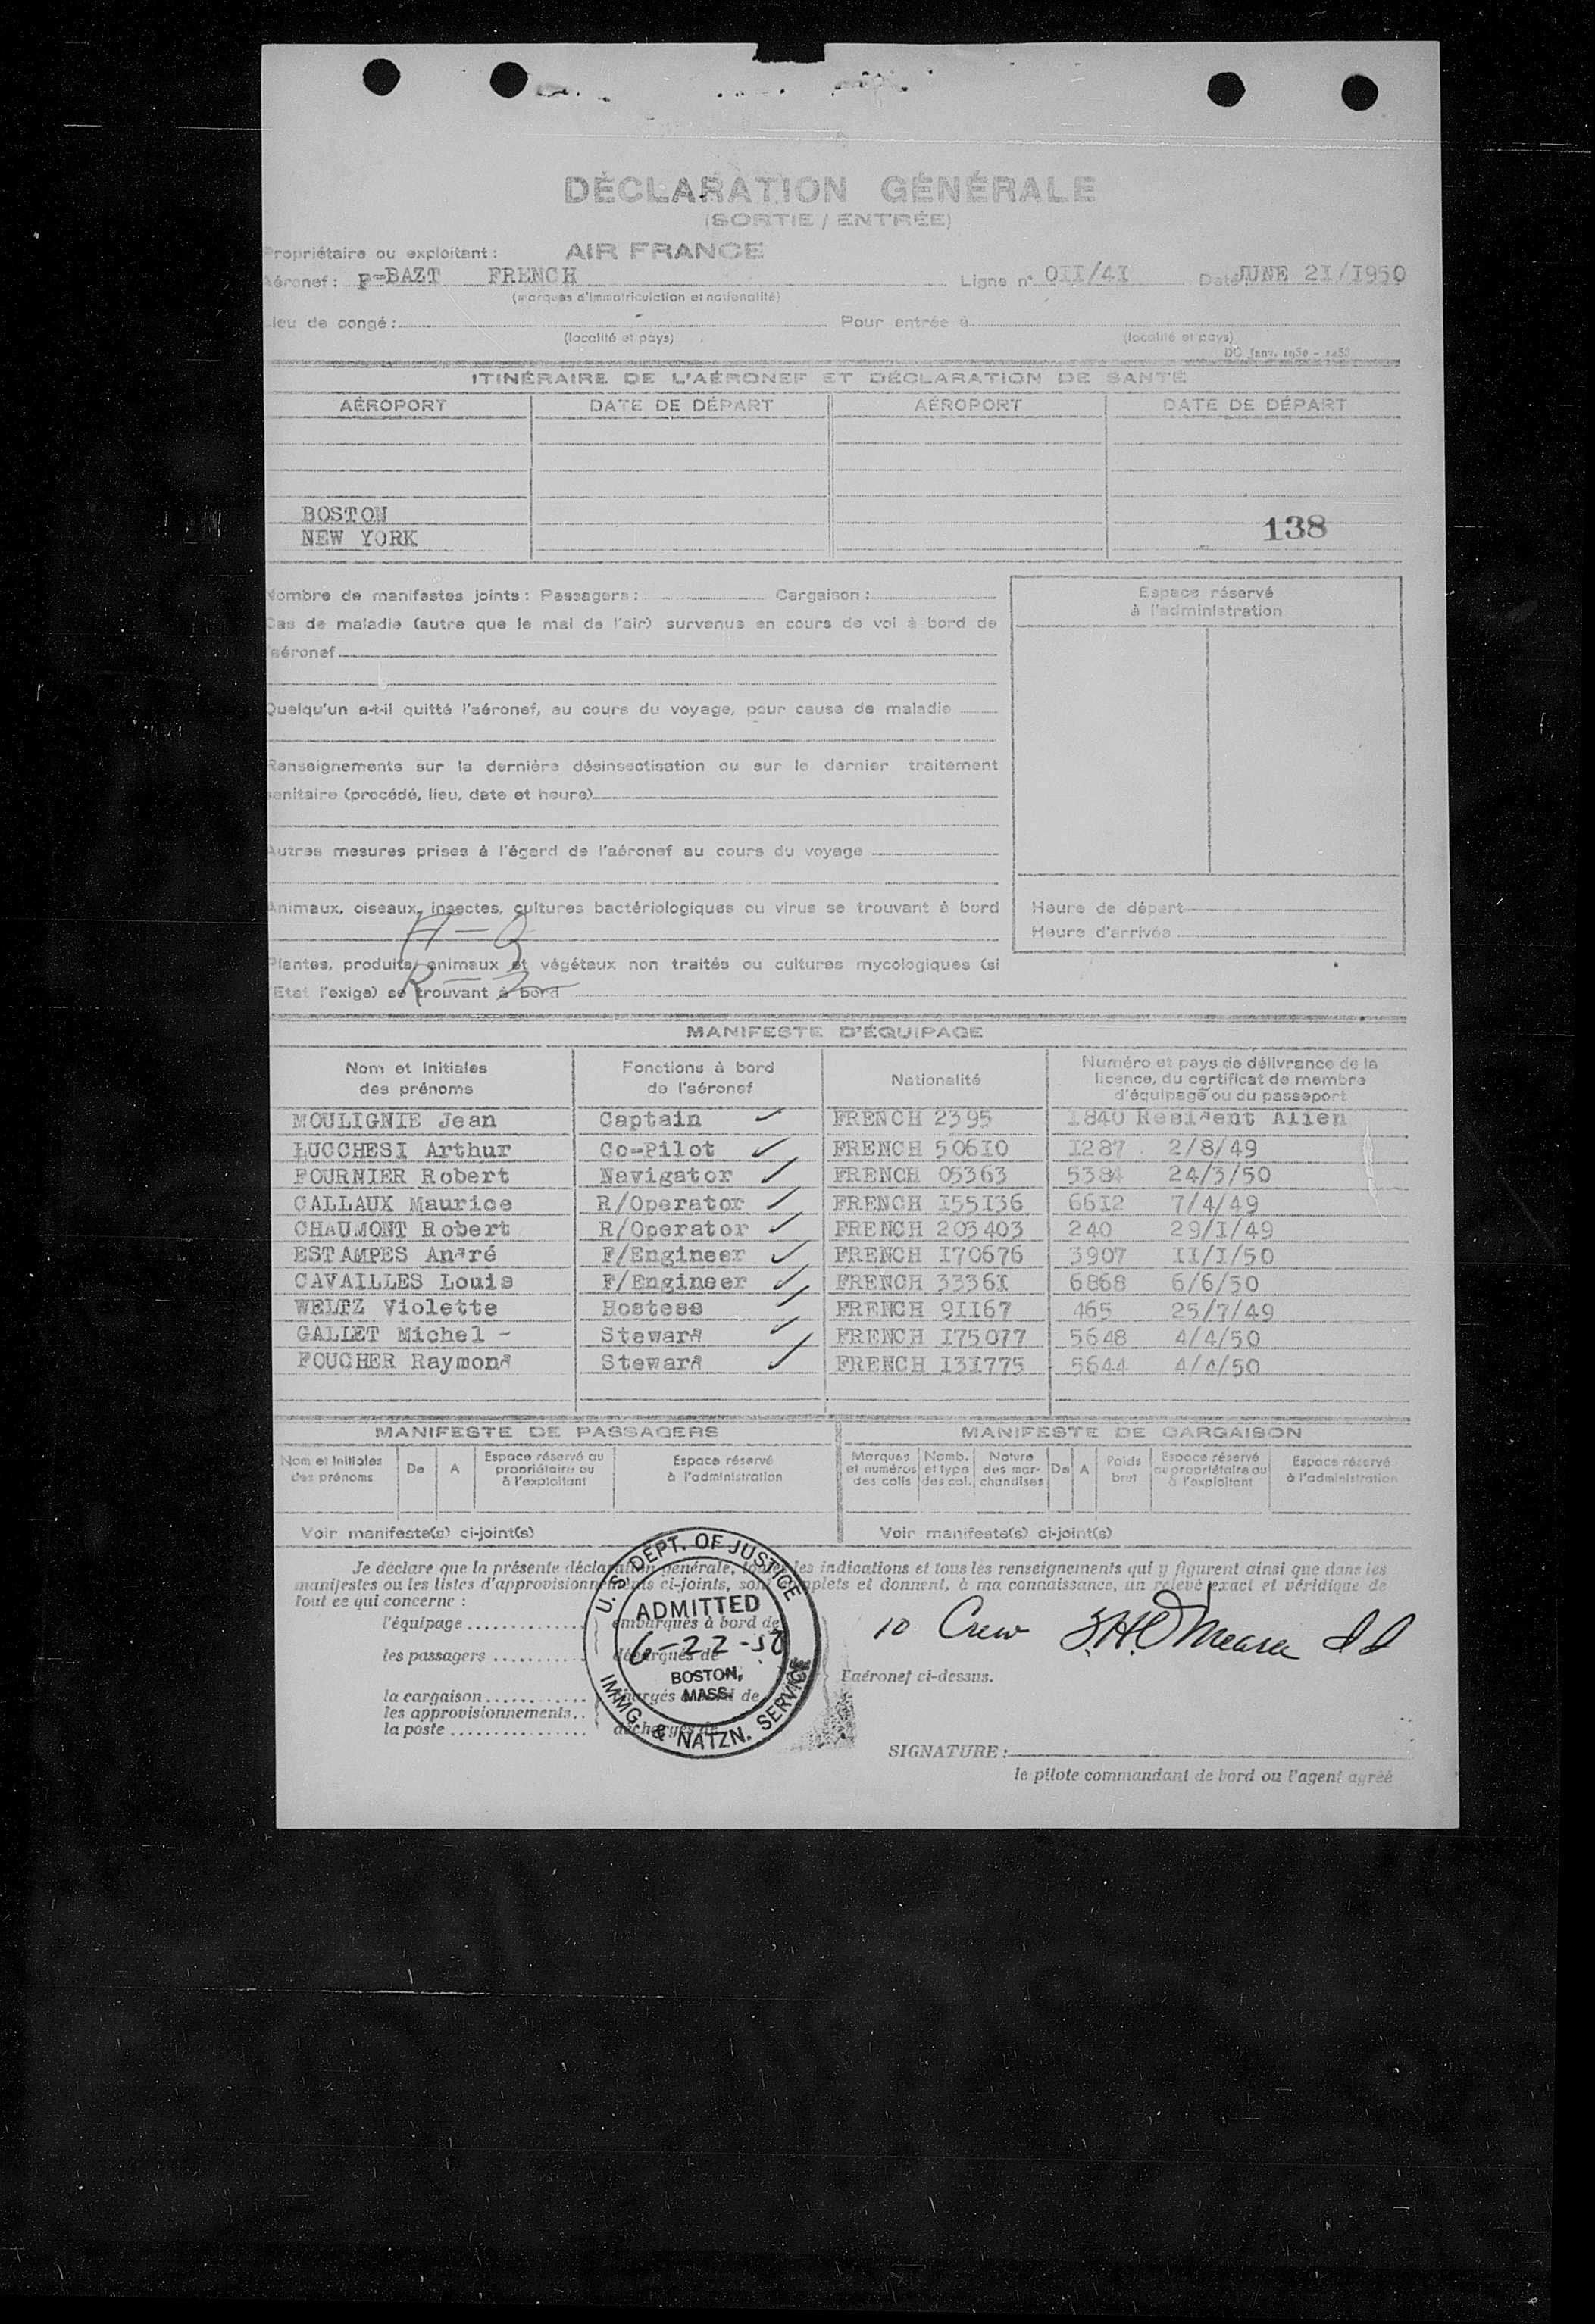 DÉCLARATION GÉNÉRALE
(SORTIE / ENTRÉE)
Propriétaire ou exploitant : AIR FRANCE
Aéronef : F-BAZT FRENCH Ligne n° OII/4I Date JUNE 2I/I950
(marques d'immatriculation et nationalité)
Lieu de congé : Pour entrée à
(localité et pays) (localité et pays)
ITINÉRAIRE DE L'AÉRONEF ET DÉCLARATION DE SANTÉ
AÉROPORT DATE DE DÉPART AÉROPORT DATE DE DÉPART
BOSTON
NEW YORK 138
Nombre de manifestes joints : Passagers : Cargaison :
Espace réservé
à l'administration
Cas de maladie (autre que le mal de l'air) survenus en cours de vol à bord de
l'aéronef
Quelqu'un a-t-il quitté l'aéronef, au cours du voyage, pour cause de maladie
Renseignements sur la dernière désinsectisation ou sur le dernier traitement
sanitaire (procédé, lieu, date et heure)
Autres mesures prises à l'égard de l'aéronef au cours du voyage
Animaux, oiseaux, insectes, cultures bactériologiques ou virus se trouvant à bord
Heure de départ
Heure d'arrivée
Plantes, produits animaux et végétaux non traités ou cultures mycologiques (si
l'Etat l'exige) se trouvant à bord
MANIFESTE D'ÉQUIPAGE
Nom et Initiales
des prénoms
Fonctions à bord
de l'aéronef
Nationalité
Numéro et pays de délivrance de la
licence, du certificat de membre
d'équipage ou du passeport
MOULIGNIE Jean Captain ✓ FRENCH 2395 I840 Resident Alien
LUCCHESI Arthur Co-Pilot ✓ FRENCH 506I0 I287 2/8/49
FOURNIER Robert Navigator ✓ FRENCH 05363 5384 24/3/50
CALLAUX Maurice R/Operator ✓ FRENCH I55I36 66I2 7/4/49
CHAUMONT Robert R/Operator ✓ FRENCH 203403 240 29/I/49
ESTAMPES André F/Engineer ✓ FRENCH I70676 3907 II/I/50
CAVAILLES Louis F/Engineer ✓ FRENCH 3336I 6868 6/6/50
WELTZ Violette Hostess ✓ FRENCH 9II67 465 25/7/49
GALLET Michel - Steward ✓ FRENCH I75077 5648 4/4/50
FOUCHER Raymond Steward ✓ FRENCH I3I775 5644 4/4/50
MANIFESTE DE PASSAGERS MANIFESTE DE CARGAISON
Nom et Initiales
des prénoms
De
A
Espace réservé au
propriétaire ou
à l'exploitant
Espace réservé
à l'administration
Marques
et numéros
des colis
Nomb.
et type
des col.
Nature
des mar-
chandises
De
A
Poids
brut
Espace réservé
au propriétaire ou
à l'exploitant
Espace réservé
à l'administration
Voir manifeste(s) ci-joint(s) Voir manifeste(s) ci-joint(s)
Je déclare que la présente déclaration générale, toutes les indications et tous les renseignements qui y figurent ainsi que dans les
manifestes ou les listes d'approvisionnements ci-joints, sont complets et donnent, à ma connaissance, un relevé exact et véridique de
tout ce qui concerne :
l'équipage
les passagers
la cargaison
les approvisionnements
la poste
embarqués à bord de
débarqués de
chargés à bord de
déchargés de
U. S. DEPT. OF JUSTICE
ADMITTED
6-22-50
BOSTON,
MASS.
IMMG. & NATZN. SERVICE
10 Crew
l'aéronef ci-dessus.
SIGNATURE :
le pilote commandant de bord ou l'agent agréé